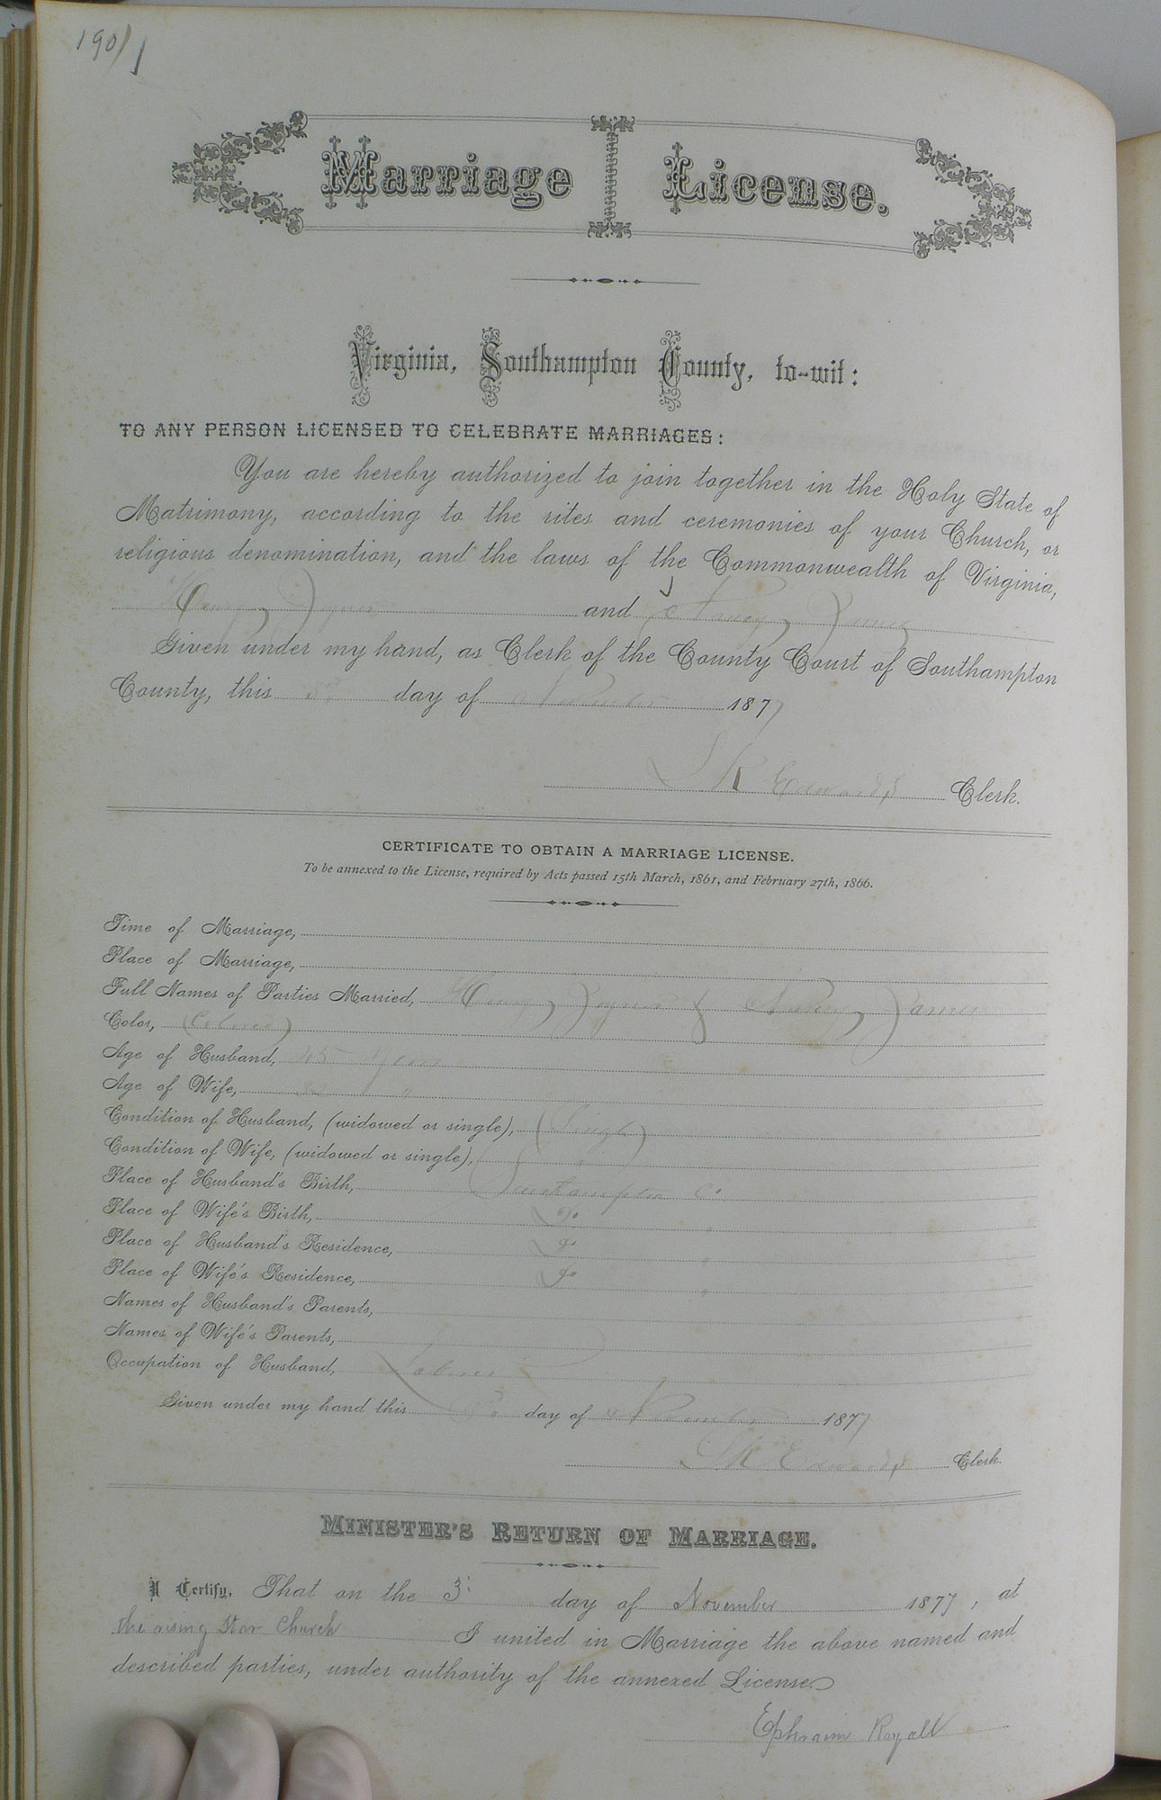 190/1
Marriage License.
Virginia, Southampton County, to-wit:
TO ANY PERSON LICENSED TO CELEBRATE MARRIAGES:
You are hereby authorized to join together in the Holy State of
Matrimony, according to the rites and ceremonies of your Church, or
religious denomination, and the laws of the Commonwealth of Virginia,
Henry and Nancy
Given under my hand, as Clerk of the County Court of Southampton
County, this day of November 1877
Edwards Clerk.
CERTIFICATE TO OBTAIN A MARRIAGE LICENSE.
To be annexed to the License, required by Acts passed 15th March, 1861, and February 27th, 1866.
Time of Marriage,
Place of Marriage,
Full Names of Parties Married, Henry & Nancy
Color, (Colored)
Age of Husband, years
Age of Wife, "
Condition of Husband, (widowed or single), (Single)
Condition of Wife, (widowed or single), "
Place of Husband's Birth, Southampton Co
Place of Wife's Birth, Do "
Place of Husband's Residence, Do "
Place of Wife's Residence, Do "
Names of Husband's Parents,
Names of Wife's Parents,
Occupation of Husband, Laborer
Given under my hand this day of November 1877
Edwards Clerk.
MINISTER'S RETURN OF MARRIAGE.
I Certify, That on the 3 day of November 1877, at
the rising Star Church I united in Marriage the above named and
described parties, under authority of the annexed License.
Ephraim Royall